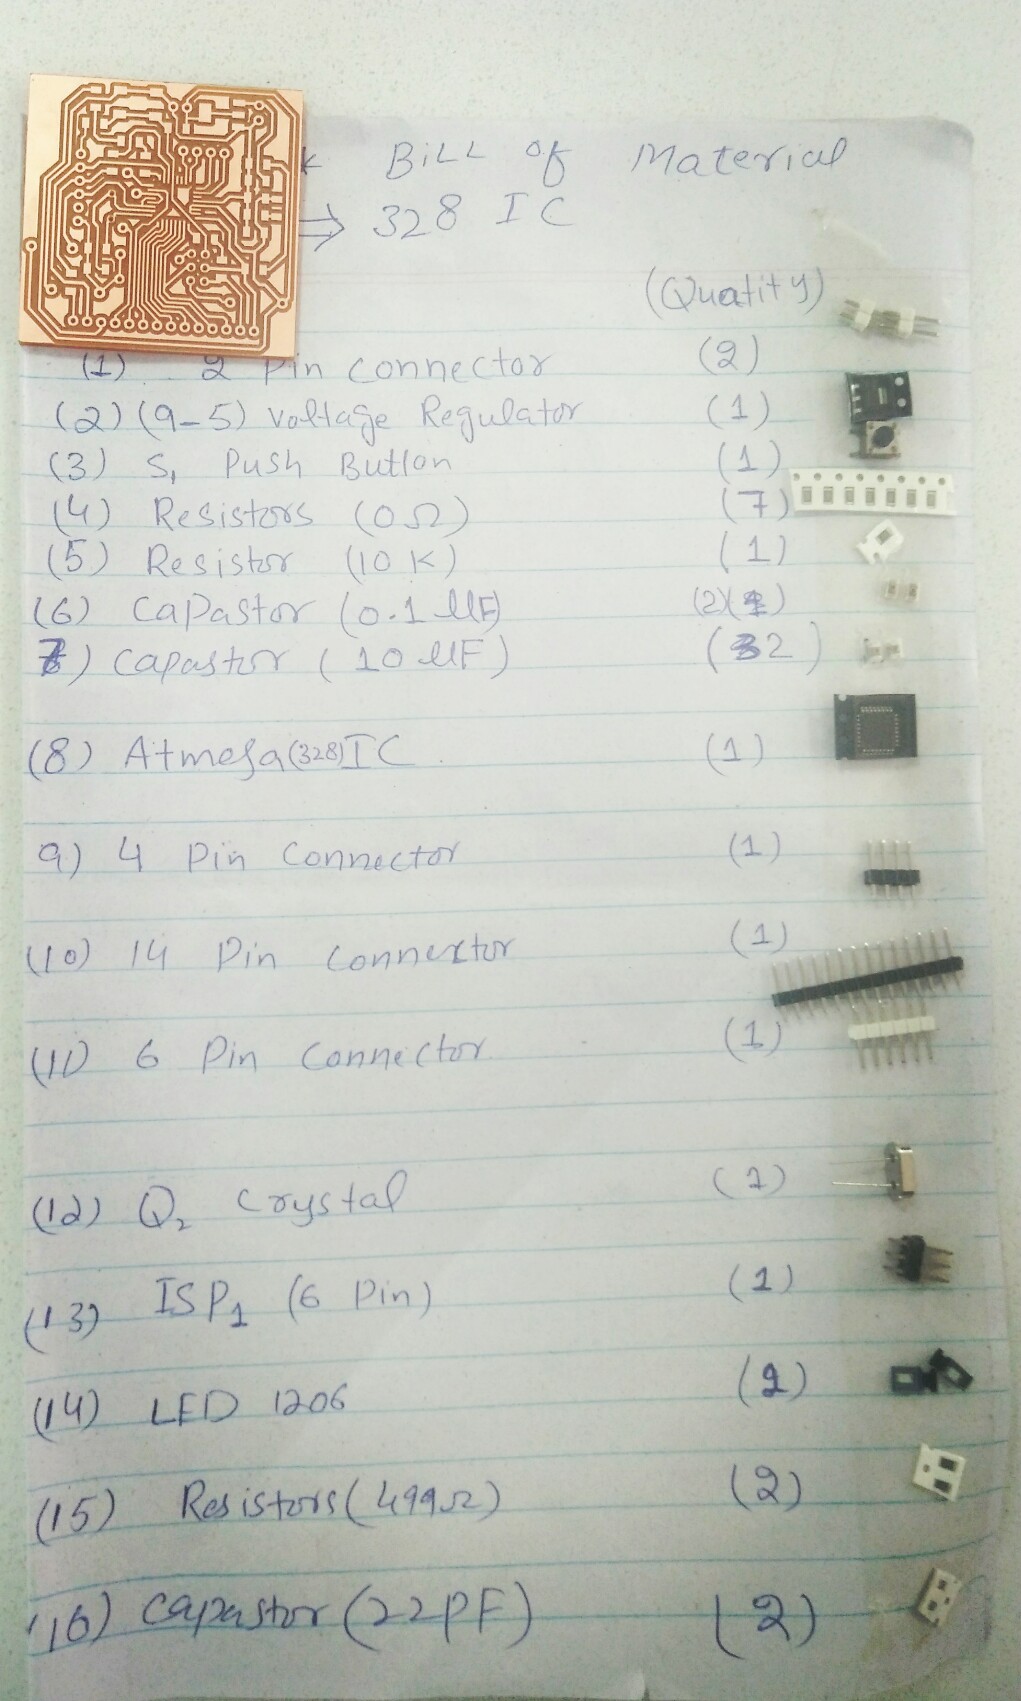 BiLL of Material
⇒ 328 IC
(Quatity)
(1) 2 Pin connector (2)
(2) (9-5) Voltage Regulator (1)
(3) S1 Push Button (1)
(4) Resistors (0Ω) (7)
(5) Resistor (10 K) (1)
(6) Capastor (0.1 UF) (2)
7) Capastor (10 UF) (2)
(8) Atmega(328)IC (1)
9) 4 Pin Connector (1)
(10) 14 Pin Connector (1)
(11) 6 Pin Connector (1)
(12) Q2 Crystal (1)
(13) ISP1 (6 Pin) (1)
(14) LED 1206 (2)
(15) Resistors (499Ω) (2)
(16) Capastor (22PF) (2)